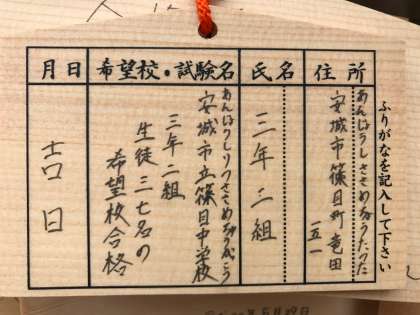 ふりがなを記入して下さい
住所
あんじょうしささめちょうたつた
安城市篠目町竜田
五一
氏名
三年二組
希望校・試験名
あんじょうしりつささめちゅうがっこう
安城市立篠目中学校
三年二組
生徒三七名の
希望校合格
月日
吉日